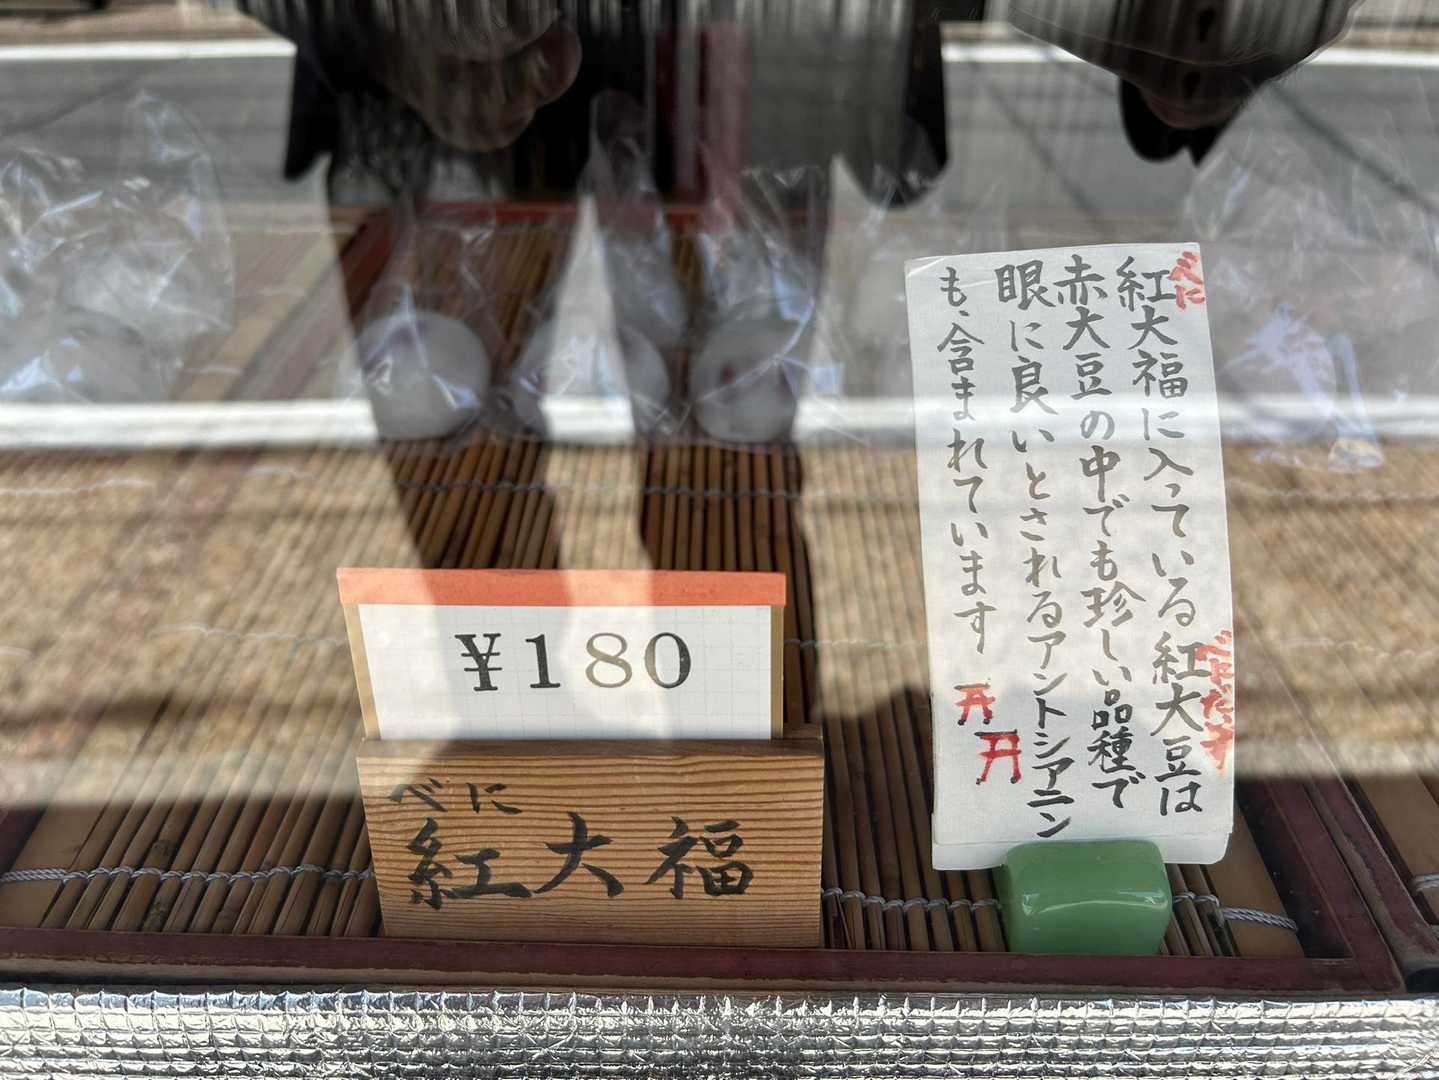 ¥180
べに
紅大福
べに
紅大福に入っている紅大豆は
べにだいず
赤大豆の中でも珍しい品種で
眼に良いとされるアントシアニン
も、含まれています